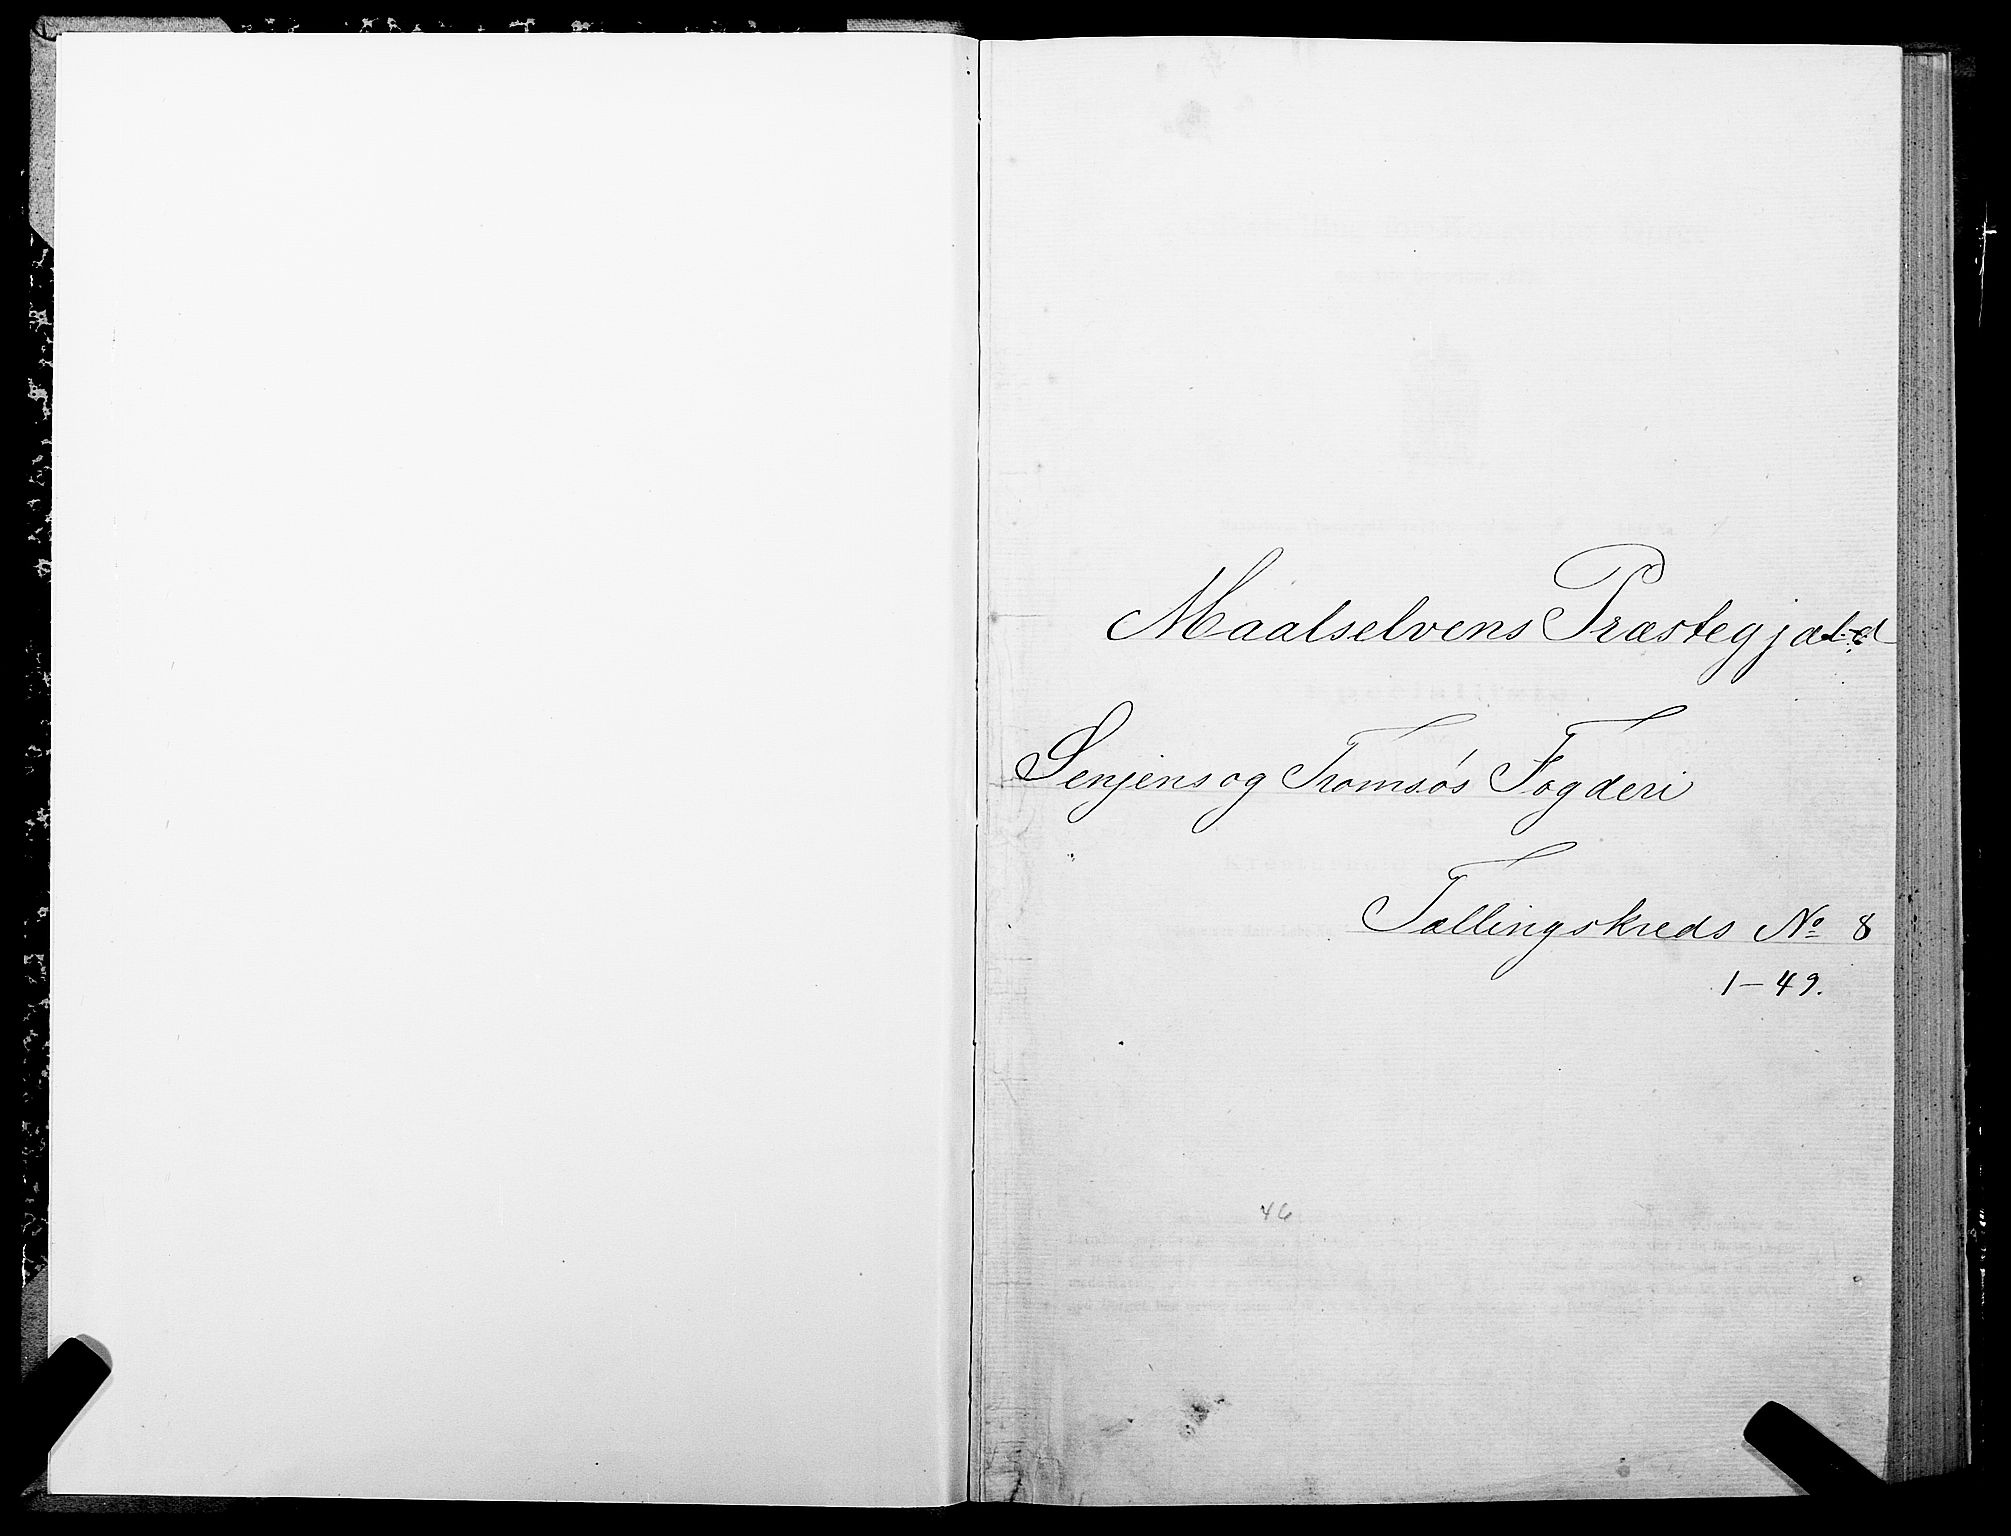 Maalselvens Præstegjæld
Senjens og Tromsøs Fogderi
Tællingskreds No 8
1-49.
46